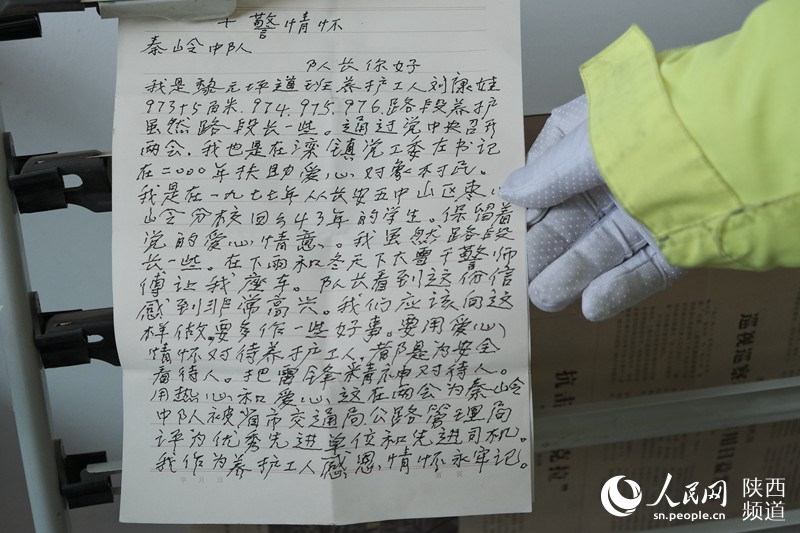 警情怀
秦岭中队
队长你好
我是黎元坪道班养护工人刘康娃
973+5百米.974.975.976.路段养护
虽然路段长一些。通过党中央召开
两会.我也是在滦镇党工委左书记
在二000年扶助爱心对象村民。
我是在一九七七年从长安五中山区枣
岭分校回乡43年的学生。保留着
党的爱心情意、。我虽然路段
长一些。在下雨和冬天下大雪干警师
傅让我座车。队长看到这份信
感到非常高兴。我们应该向这
样做.要多作一些好事。要用爱心
情怀对待养护工人.都是为安全
着待人。把雷锋精神对待人。
用热心和爱心这在两会为秦岭
中队被省市交通局公路管理局
评为优秀先进单位和先进司机。
我作为养护工人感恩.情怀永牢记。
年 月 日
人民网
陕西
频道
sn.people.cn